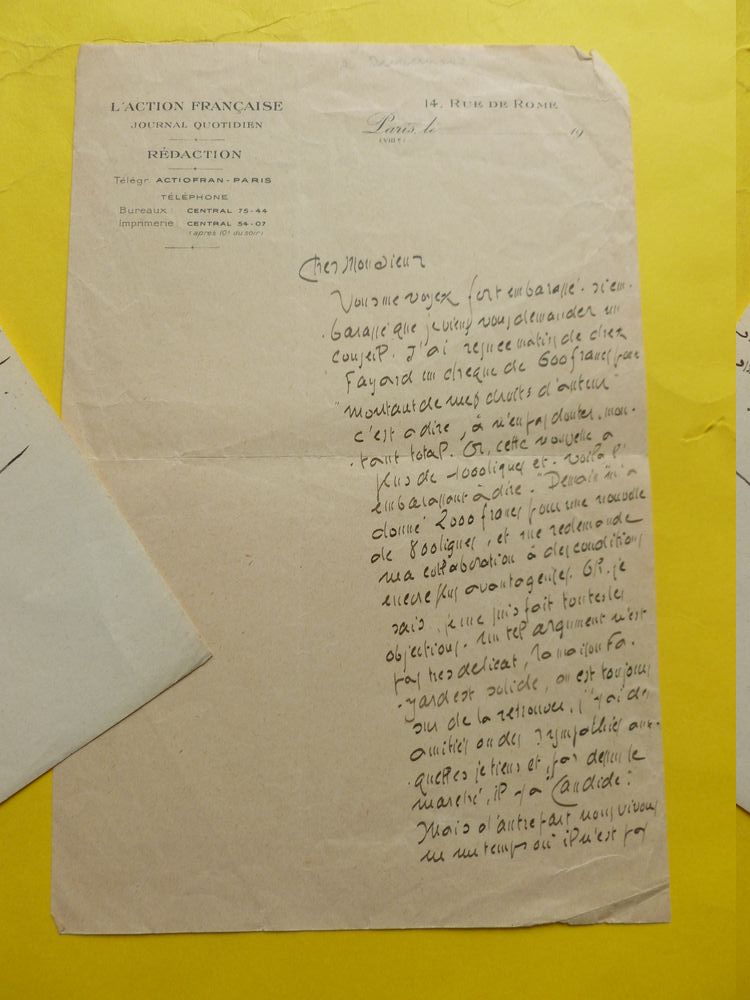 L'ACTION FRANÇAISE
JOURNAL QUOTIDIEN
RÉDACTION
Télégr. ACTIOFRAN-PARIS
TÉLÉPHONE
Bureaux : CENTRAL 75-44
Imprimerie : CENTRAL 54-07
(après 10h du soir)
14, RUE DE ROME
Paris, le 19
(VIIIe)
Cher Monsieur
Vous me voyez fort embarassé. Si em-
barassé que je viens vous demander un
conseil. J'ai reçu ce matin de chez
Fayard un chèque de 600 francs pour
"montant de mes droits d'auteur"
c'est a dire, à n'en pas douter, mon-
tant total. Or, cette nouvelle a
plus de 1000 lignes et voilà l'
embarassant à dire. "Demain" m'a
donné 2000 francs pour une nouvelle
de 800 lignes, et me redemande
ma collaboration à des conditions
encore plus avantageuses. Or, je
sais, je me suis fait toutes les
objections. Un tel argument n'est
pas tres delicat, la maison Fa-
yard est solide, on est toujours
sur de la retrouver, j'y ai des
amitiés ou des sympathies aux-
quelles je tiens et, par dessus le
marché, il y a Candide!
Mais d'autre part nous vivons
en un temps où il n'est pas